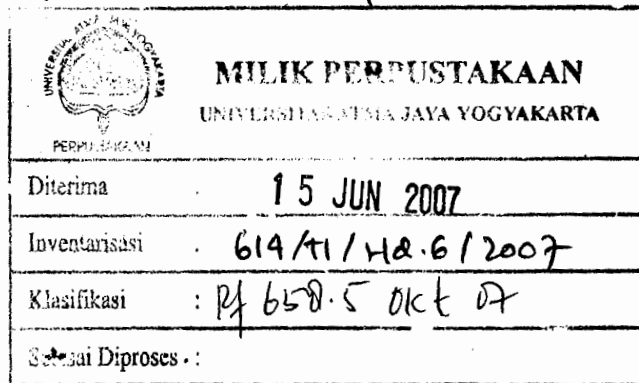 UNIVERSITAS ATMA JAYA YOGYAKARTA
PERPUSTAKAAN
MILIK PERPUSTAKAAN
UNIVERSITAS ATMA JAYA YOGYAKARTA
Diterima : 15 JUN 2007
Inventarisasi : 614/TI/Hd.6/2007
Klasifikasi : Rf 658.5 Okt 07
Selesai Diproses :